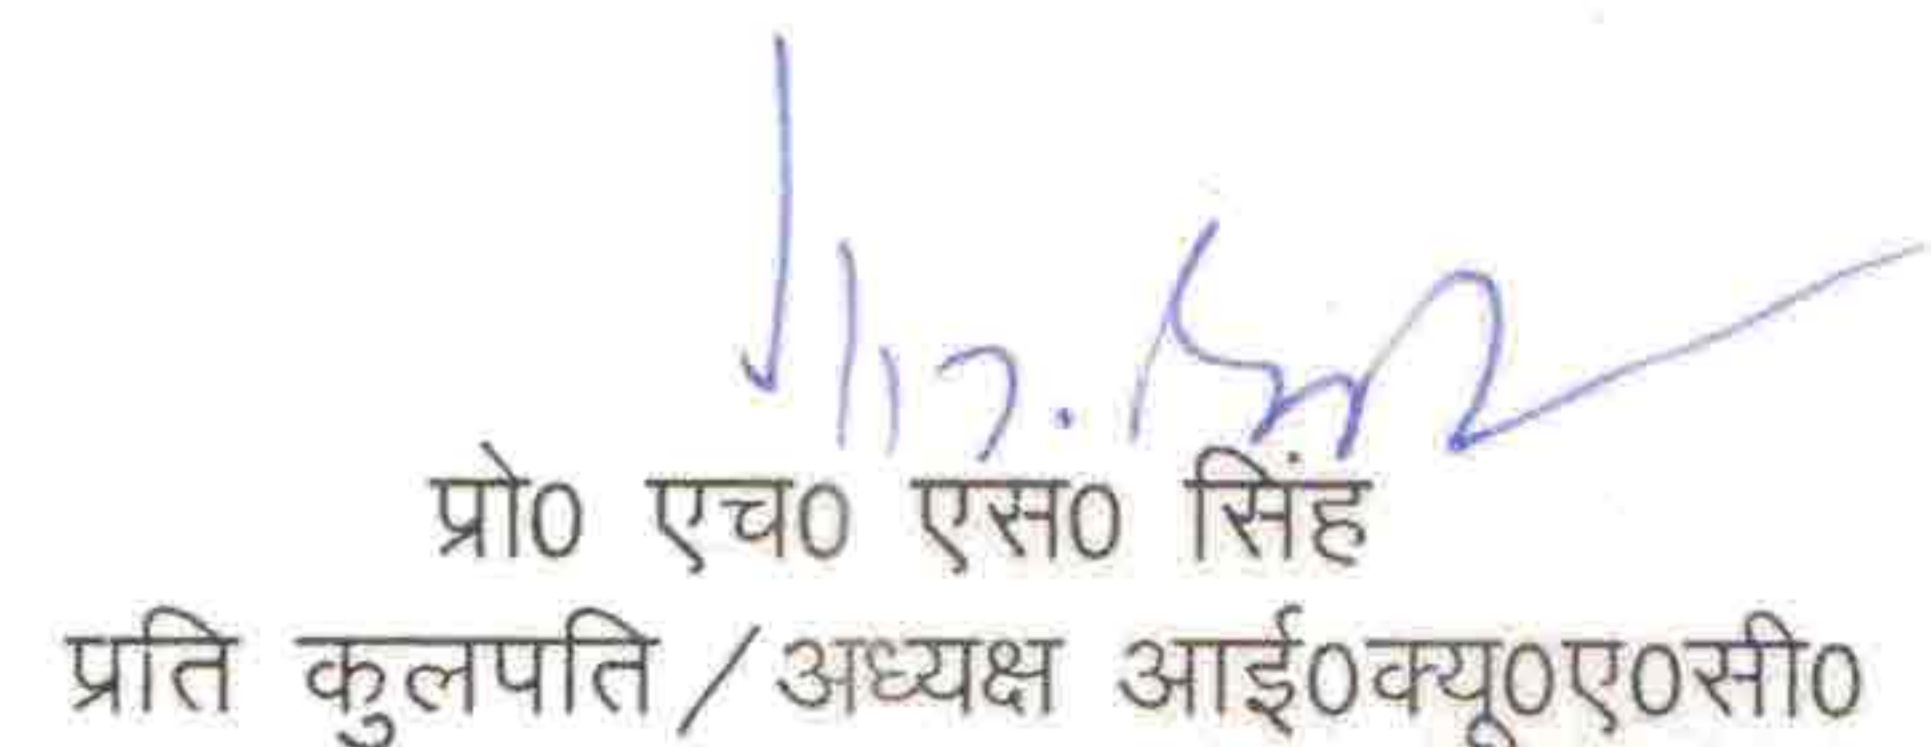 प्रो0 एच0 एस0 सिंह
प्रति कुलपति/अध्यक्ष आई0क्यू0ए0सी0